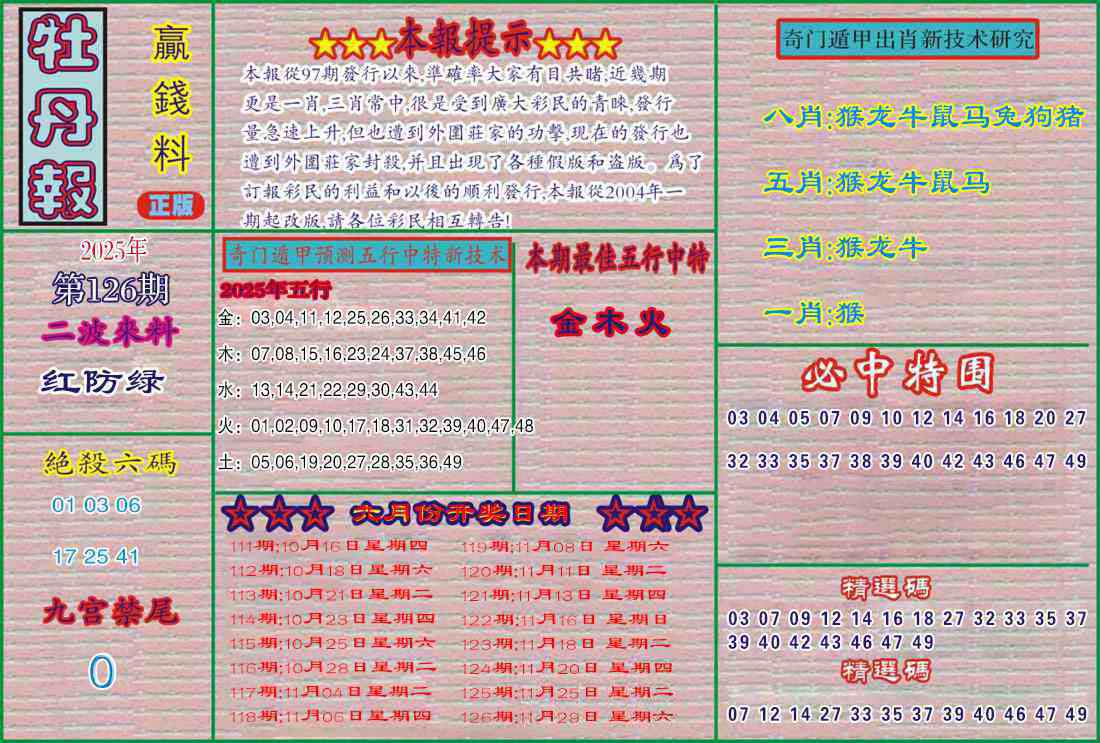 牡丹報
贏錢料
正版
2025年
第126期
二波來料
红防绿
絕殺六碼
01 03 06
17 25 41
九宫禁尾
0
★★★本報提示★★★
本報從97期發行以來,準確率大家有目共睹,近幾期
更是一肖,三肖常中,很是受到廣大彩民的青睞,發行
量急速上升,但也遭到外圍莊家的功擊,現在的發行也
遭到外圍莊家封殺,并且出現了各種假版和盗版。爲了
訂報彩民的利益和以後的順利發行,本報從2004年一
期起改版,請各位彩民相互轉告!
奇门遁甲預测五行中特新技术
2025年五行
金：03,04,11,12,25,26,33,34,41,42
木：07,08,15,16,23,24,37,38,45,46
水：13,14,21,22,29,30,43,44
火：01,02,09,10,17,18,31,32,39,40,47,48
土：05,06,19,20,27,28,35,36,49
本期最佳五行中特
金木火
六月份开奖日期
111期:10月16日星期四 119期:11月08日 星期六
112期:10月18日星期六 120期:11月11日 星期二
113期:10月21日星期二 121期:11月13日 星期四
114期:10月23日星期四 122期:11月16日 星期日
115期:10月25日星期六 123期:11月18日 星期二
116期:10月28日星期二 124期:11月20日 星期四
117期:11月04日星期二 125期:11月25日 星期二
118期:11月06日星期四 126期:11月29日 星期六
奇门遁甲出肖新技术研究
八肖:猴龙牛鼠马兔狗猪
五肖:猴龙牛鼠马
三肖:猴龙牛
一肖:猴
必中特围
03 04 05 07 09 10 12 14 16 18 20 27
32 33 35 37 38 39 40 42 43 46 47 49
精選碼
03 07 09 12 14 16 18 27 32 33 35 37
39 40 42 43 46 47 49
精選碼
07 12 14 27 33 35 37 39 40 46 47 49